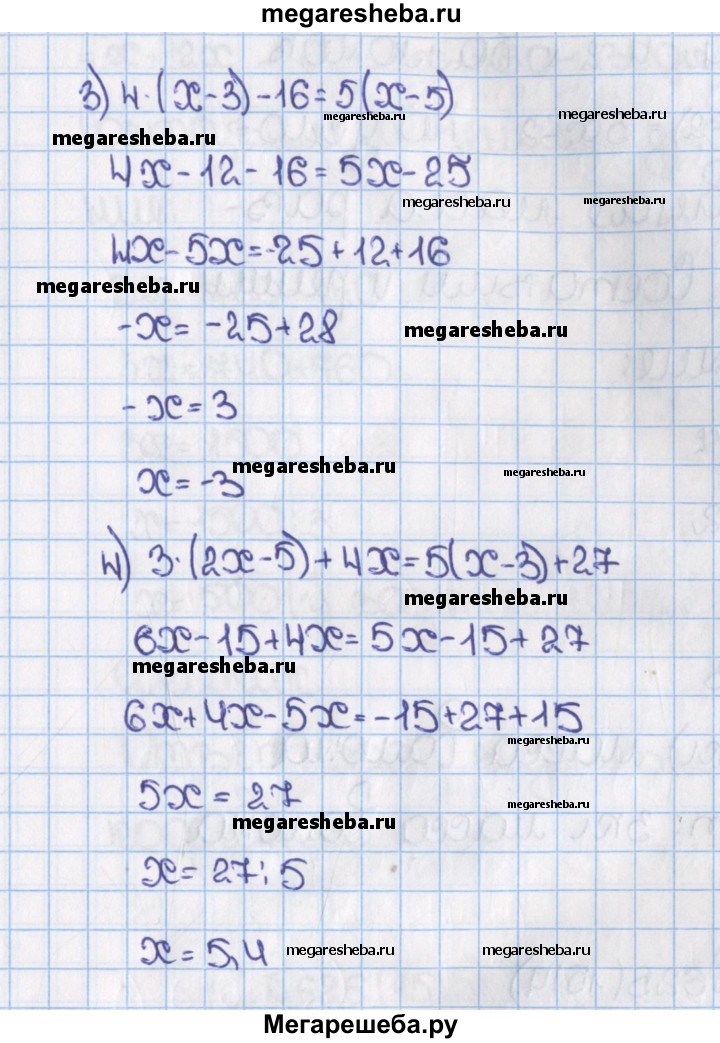 megaresheba.ru
3) 4·(x-3)-16=5(x-5)
megaresheba.ru
megaresheba.ru
megaresheba.ru
4x-12-16=5x-25
megaresheba.ru
megaresheba.ru
4x-5x=-25+12+16
megaresheba.ru
-x=-25+28
megaresheba.ru
-x=3
megaresheba.ru
megaresheba.ru
x=-3
4) 3·(2x-5)+4x=5(x-3)+27
megaresheba.ru
6x-15+4x=5x-15+27
megaresheba.ru
6x+4x-5x=-15+27+15
megaresheba.ru
5x=27
megaresheba.ru
megaresheba.ru
x=27:5
x=5,4
megaresheba.ru
megaresheba.ru
Мегарешеба.ру